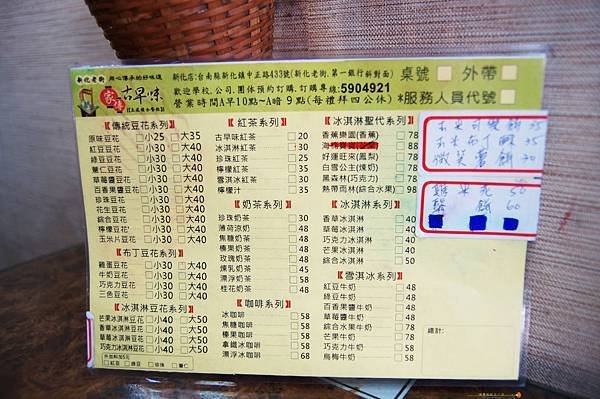 新化老街 用心傳承的好味道
家傳古早味
新化店:台南縣新化鎮中正路433號(新化老街.第一銀行斜對面)
歡迎學校.公司.團体預約訂購.訂購專線:5904921
營業時間A早10點~A暗9點(每禮拜四公休)
桌號□ 外帶□
*服務人員代號□
【傳統豆花系列】
原味豆花 □小25 □大35
紅豆豆花 □小30 □大40
綠豆豆花 □小30 □大40
薏仁豆花 □小30 □大40
草莓醬豆花 □小30 □大40
百香果醬豆花 □小30 □大40
珍珠豆花 □小30 □大40
花生豆花 □小30 □大40
綜合豆花 □小30 □大40
檸檬豆花 □小30 □大40
玉米片豆花 □小30 □大40
【布丁豆花系列】
雞蛋豆花 □小30 □大40
牛奶豆花 □小30 □大40
巧克力豆花 □小30 □大40
三色豆花 □小30 □大40
【冰淇淋豆花系列】
芒果冰淇淋豆花 □小40 □大50
香草冰淇淋豆花 □小40 □大50
草莓冰淇淋豆花 □小40 □大50
巧克力冰淇淋豆花 □小40 □大50
外加料加5元
□紅豆 □綠豆 □珍珠 □薏仁
【紅茶系列】
古早味紅茶 □20
冰淇淋紅茶 □30
珍珠紅茶 □25
檸檬紅茶 □25
雪淇冰紅茶 □30
檸檬汁 □35
【奶茶系列】
珍珠奶茶 □30
薄荷流奶 □48
焦糖奶茶 □48
榛果奶茶 □48
玫瑰奶茶 □48
煉乳奶茶 □45
漂浮奶茶 □58
桂花奶茶 □48
【咖啡系列】
冰咖啡 □58
焦糖咖啡 □58
榛果咖啡 □58
拿鐵冰咖啡 □58
漂浮冰咖啡 □68
【冰淇淋聖代系列】
香蕉樂園(香蕉) □78
□88
好運旺來(鳳梨) □78
白雪公主(煉奶) □78
黑森林(巧克力) □78
熱帶雨林(綜合水果) □98
【冰淇淋系列】
香草冰淇淋 □40
草莓冰淇淋 □40
巧克力冰淇淋 □40
芒果冰淇淋 □40
綜合冰淇淋 □50
【雪淇冰系列】
紅豆牛奶 □48
綠豆牛奶 □48
百香果醬牛奶 □48
草莓醬牛奶 □48
綜合水果牛奶 □58
芒果牛奶 □58
巧克力牛奶 □58
烏梅牛奶 □58
總計:
35
35
30
雞米花 50
鬆餅 60